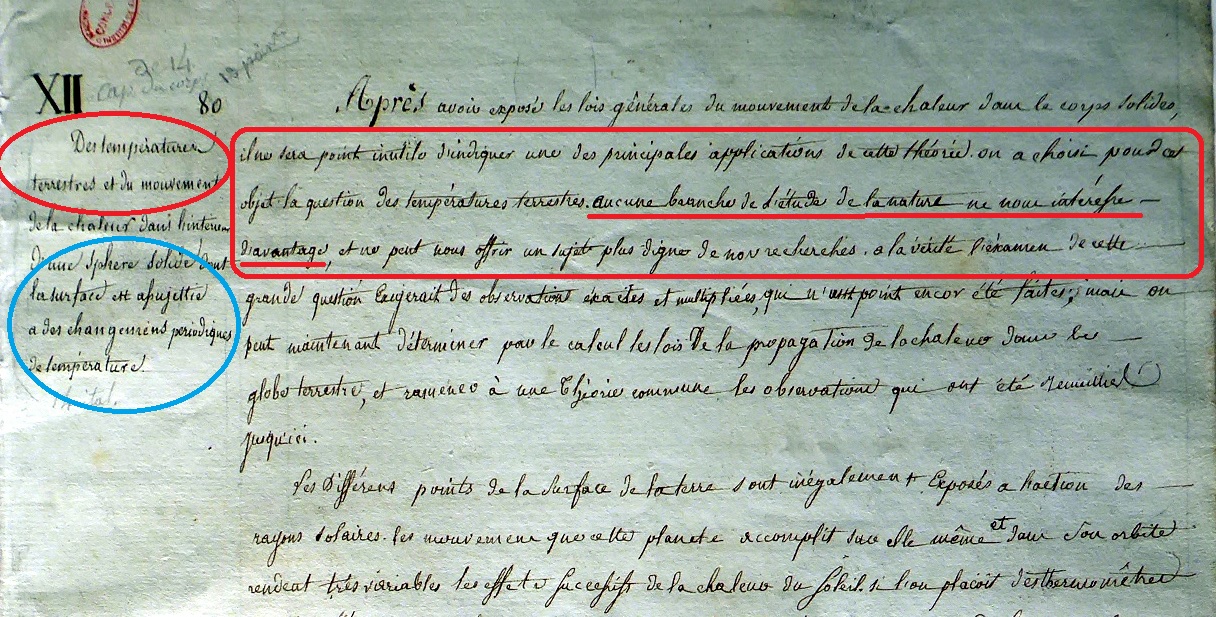 3e 14
cap. du corps 13 point
XII
80
Des températures
terrestres et du mouvement
de la chaleur dans l'interieur
d'une sphère solide dont
la surface est assujettie
a des changemens periodiques
de température.
Après avoir exposé les lois générales du mouvement de la chaleur dans les corps solides,
il ne sera point inutile d'indiquer une des principales applications de cette théorie. on a choisi pour cet
objet la question des températures terrestres. aucune branche de l'étude de la nature ne nous intéresse —
d'avantage, et ne peut nous offrir un sujet plus digne de nos recherches. a la vérité l'examen de cette —
grande question Exigerait des observations éxactes et multipliées, qui n'ont point encor été faites; mais on
peut maintenant déterminer par le calcul les lois de la propagation de la chaleur dans le —
globe terrestre, et ramener à une Théorie commune les observations qui ont été recueillies
jusqu'ici.
Les différens points de la Surface de la terre sont inégalement Exposés a l'action des —
rayons solaires. les mouvemens que cette planete accomplit sur elle même et dans son orbite
rendent très variables les effets successifs de la chaleur du Soleil. si l'on plaçoit des thermomètres